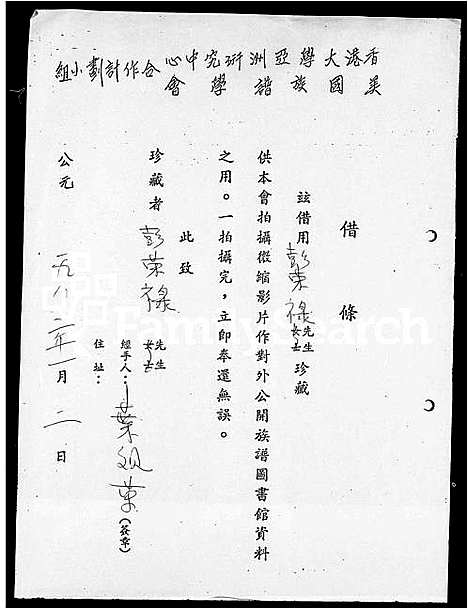 香港大學亞洲研究中心
美國族譜學會
合作計劃小組
借條
茲借用彭荣禄先生女士珍藏
供本會拍攝微縮影片作對外公開族譜圖書館資料
之用。一拍攝完，立即奉還無誤。
此致
珍藏者 彭荣禄 先生女士
經手人：葉祖荣（簽章）
住址：
公元一九八二年一月二日
FamilySearch